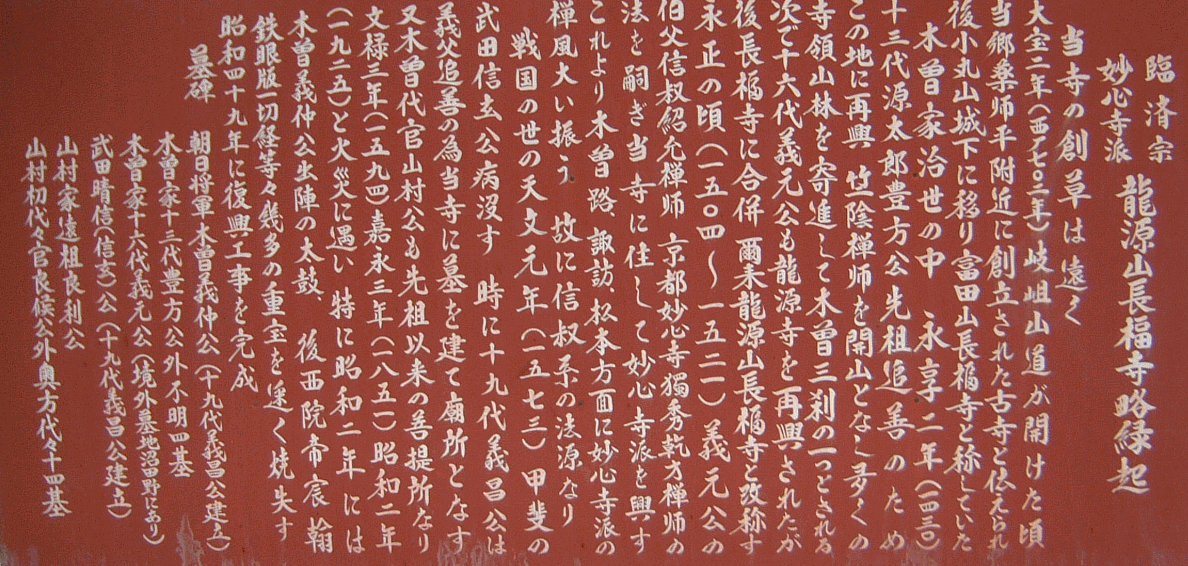 臨済宗
妙心寺派 龍源山長福寺略縁起
当寺の創草は遠く
大宝二年(西七〇二年)岐岨山道が開けた頃
当郷薬師平附近に創立された古寺と伝えられ
後小丸山城下に移り富田山長福寺と称していた
木曽家治世の中 永享二年(一四三〇)
十三代源太郎豊方公先祖追善のため
この地に再興 竺陰禅師を開山となし多くの
寺領山林を寄進して木曽三刹の一つとされる
次で十六代義元公も龍源寺を再興されたが
後長福寺に合併 爾来龍源山長福寺と改称す
永正の頃(一五〇四~一五二一)義元公の
伯父信叔紹允禅師 京都妙心寺獨秀乾才禅師の
法を嗣ぎ当寺に住して妙心寺派を興す
これより木曽路、諏訪、松本方面に妙心寺派の
禅風大い振う 故に信叔系の法源なり
戦国の世の天文元年(一五七三)甲斐の
武田信玄公病没す 時に十九代義昌公は
義父追善の為当寺に墓を建て廟所となす
又木曽代官山村公も先祖以来の菩提所なり
文禄三年(一五九四)嘉永三年(一八五一)昭和二年
(一九二五)と火災に遇い 特に昭和二年には
木曽義仲公出陣の太鼓、後西院帝宸翰
鉄眼版一切経等々幾多の重宝を遂く焼失す
昭和四十九年に復興工事を完成
墓碑 朝日将軍木曽義仲公(十九代義昌公建立)
木曽家十三代豊方公外不明四基
木曽家十六代義元公(境外墓地沼野により)
武田晴信(信玄)公(十九代義昌公建立)
山村家遠祖良利公
山村初代々官良候公外奥方代々十四基